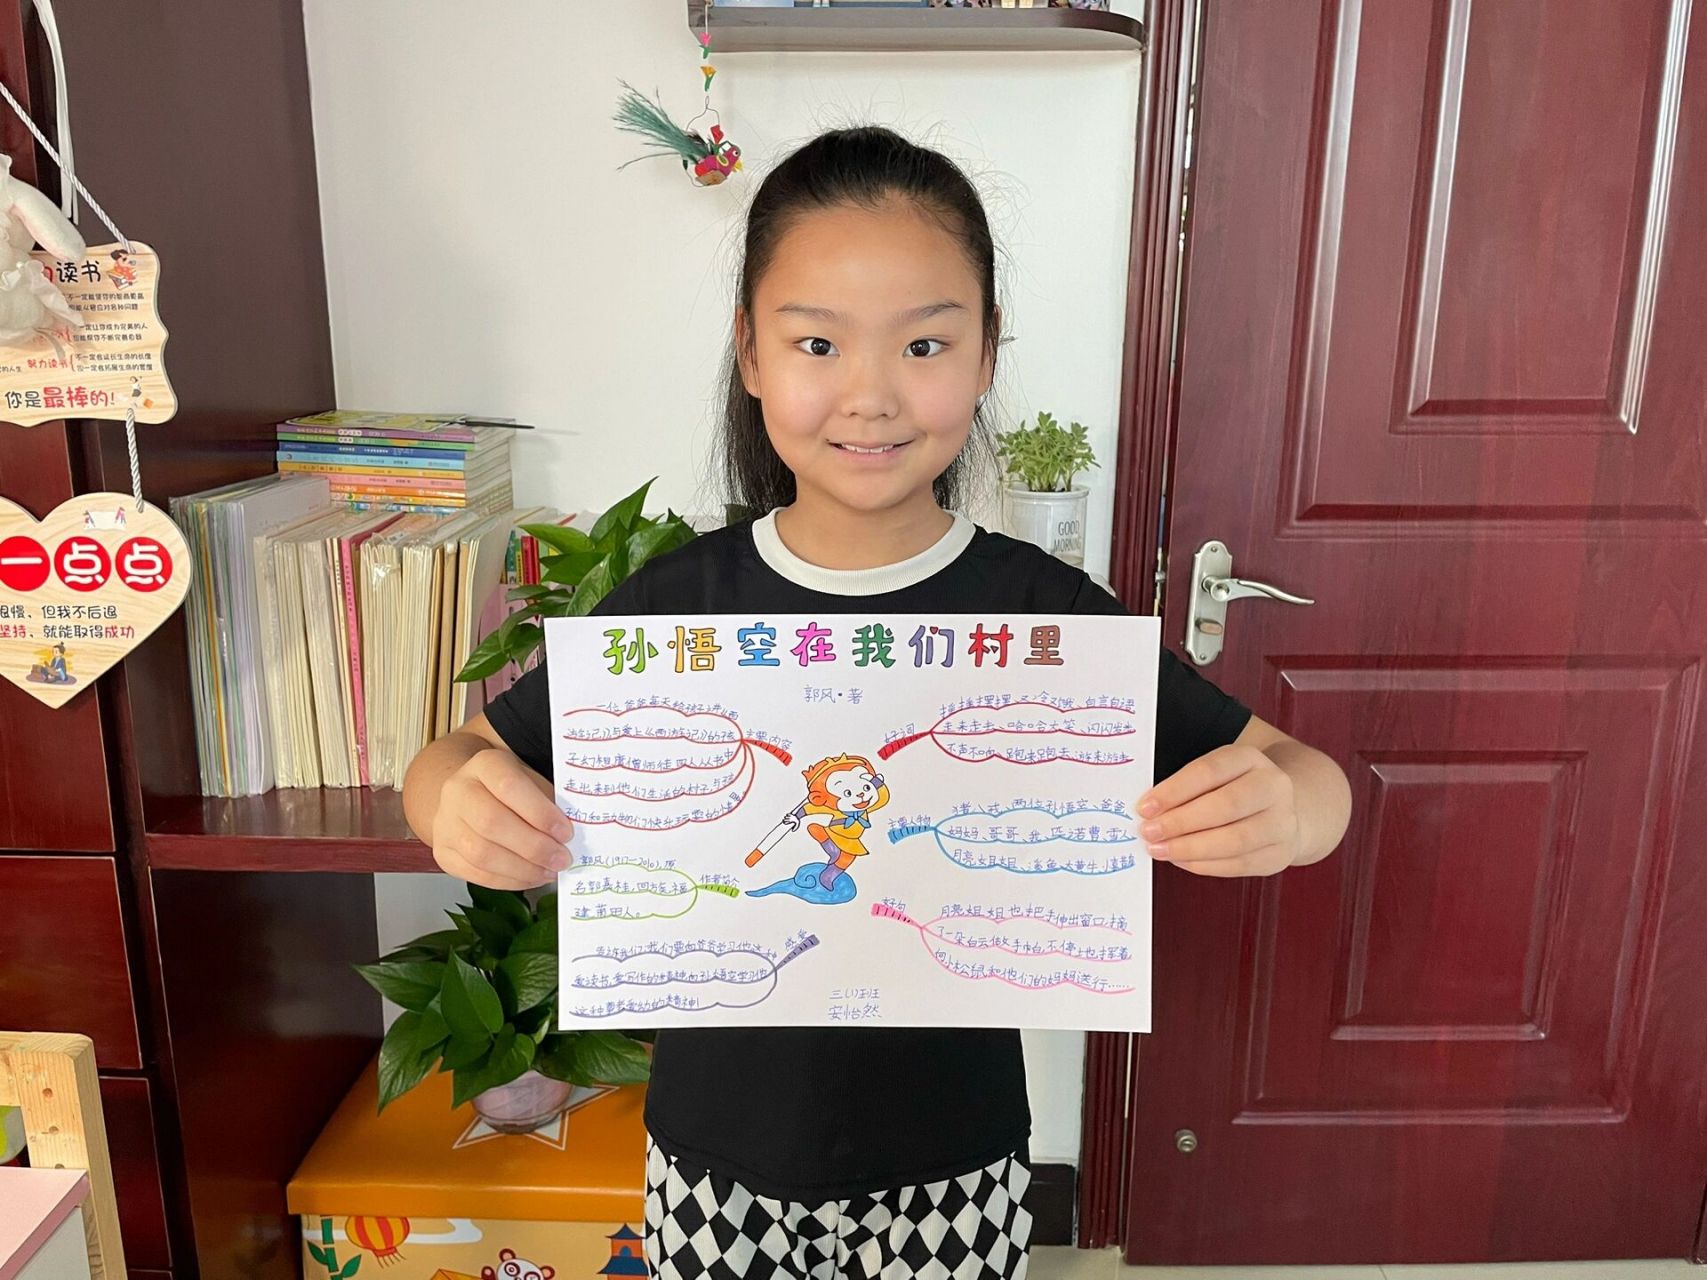 读书
不一定让你成为完美的人
努力读书
不一定会延长生命的长度
但一定会拓展生命的宽度
你是最棒的!
一点点
很慢、但我不后退
坚持、就能取得成功
GOOD
MORNING
孙悟空在我们村里
郭风·著
一位爸爸每天给孩子讲《西
游记》,与爱上《西游记》的孩
子幻想唐僧师徒四人从书中
走出来到他们生活的村子,与孩
子们和动物们快乐玩耍的情景。
主要内容
郭风(1917—2010),原
名郭嘉桂,回族,福
建莆田人。
作者简介
告诉我们,我们要向爸爸学习他这种
爱读书,爱写作的精神,向孙悟空学习他
这种尊老爱幼的精神!
感受
好词
摇摇摆摆、又冷又饿、自言自语
走来走去、哈哈大笑、闪闪发光
不声不响、跑来跑去、游来游去
主要人物
猪八戒、两位孙悟空、爸爸
妈妈、哥哥、我、匹诺曹、雪人
月亮姐姐、鲨鱼、大黄牛、小喜鹊
好句
月亮姐姐也把手伸出窗口,摘
了一朵白云做手帕,不停土也挥着
向小松鼠和他们的妈妈送行……
三(1)班
安怡然